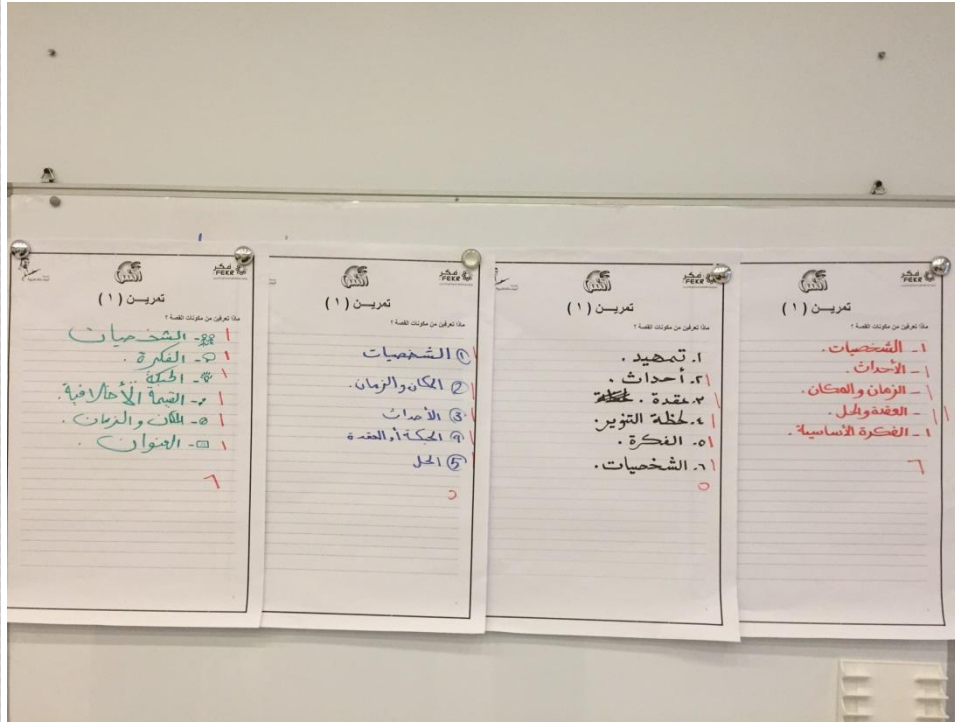 فكر
FEKR
تمريـن ( ١ )
ماذا تعرفين من مكونات القصة ؟
١ـ الشخصيات.
ـ الأحداث.
ـ الزمان والمكان.
ـ العقدة والحل.
ـ الفكرة الأساسية.
٦
فكر
FEKR
تمريـن ( ١ )
ماذا تعرفين من مكونات القصة ؟
١. تمهيد.
٢. أحداث.
٣. عقدة.
٤. لحظة التنوير.
٥. الفكرة.
٦. الشخصيات.
٥
فكر
FEKR
تمريـن ( ١ )
ماذا تعرفين من مكونات القصة ؟
① الشخصيات
② المكان والزمان.
③ الأحداث
④ الحبكة أو العقدة
⑤ الحل
فكر
FEKR
تمريـن ( ١ )
ماذا تعرفين من مكونات القصة ؟
ـ الشخصيات
ـ الفكرة.
ـ الحبكة.
ـ القيمة الأخلاقية.
ـ المكان والزمان.
ـ العنوان.
٦